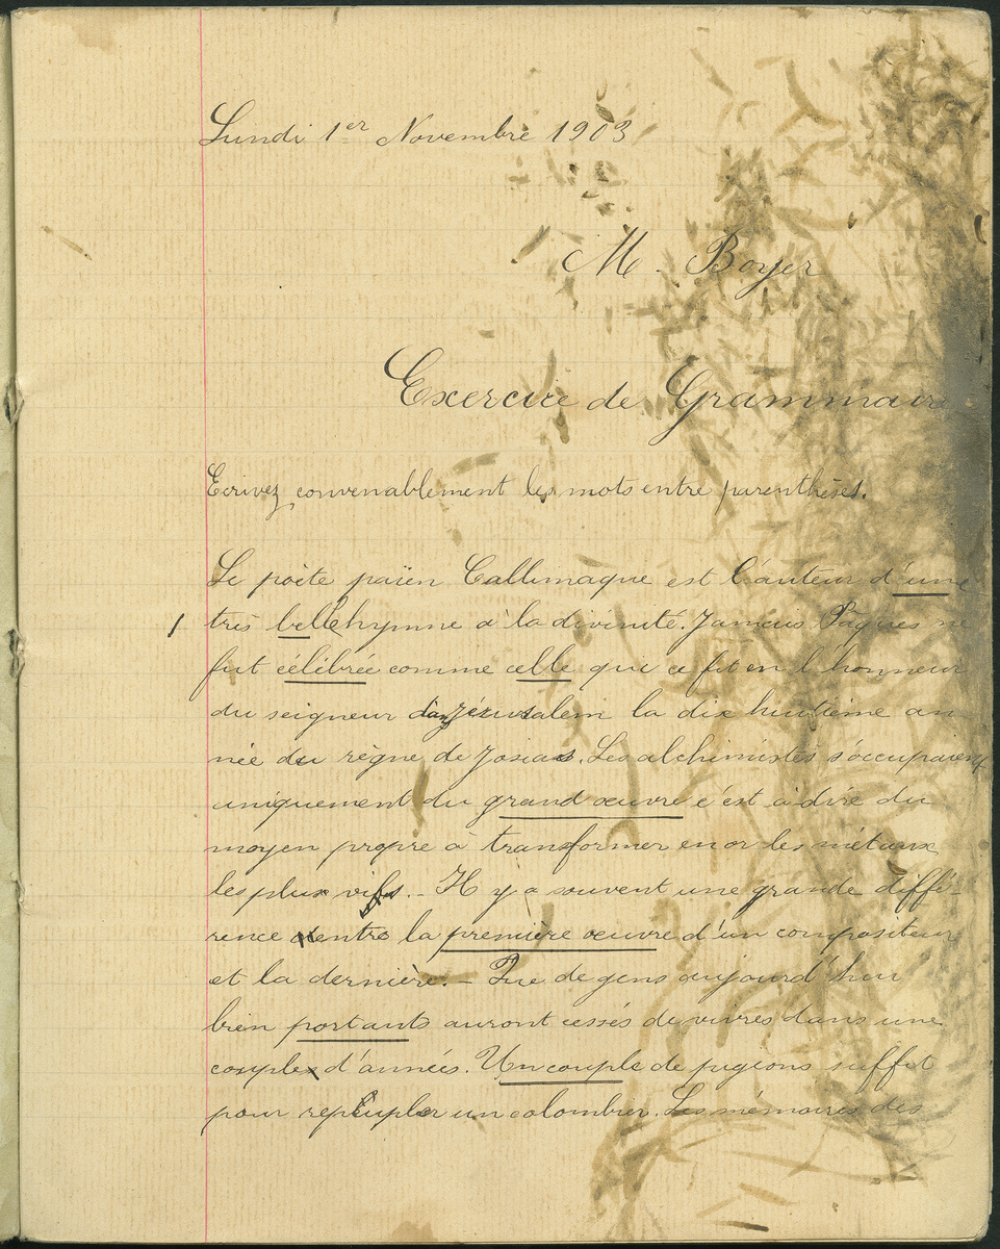 Lundi 1er Novembre 1903
M. Boyer
Exercice de Grammaire
Ecrivez convenablement les mots entre parenthèses.
Le poète païen Callimaque est l'auteur d'une
1 très belle hymne à la divinité. Jamais Pâques ne
fut célébrée comme celle que ce fit en l'honneur
du seigneur dans Jérusalem la dix huitième an
née du règne de Josias. Les alchimistes s'occupaient
uniquement du grand œuvre c'est à dire du
moyen propre à transformer en or les métaux
les plus vils. - Il y a souvent une grande diffé-
rence entre la première œuvre d'un compositeur
et la dernière. - Que de gens aujourd'hui
bien portants auront cessés de vivres dans une
couple d'années. Un couple de pigeons suffit
pour repeupler un colombier. Les mémoires des